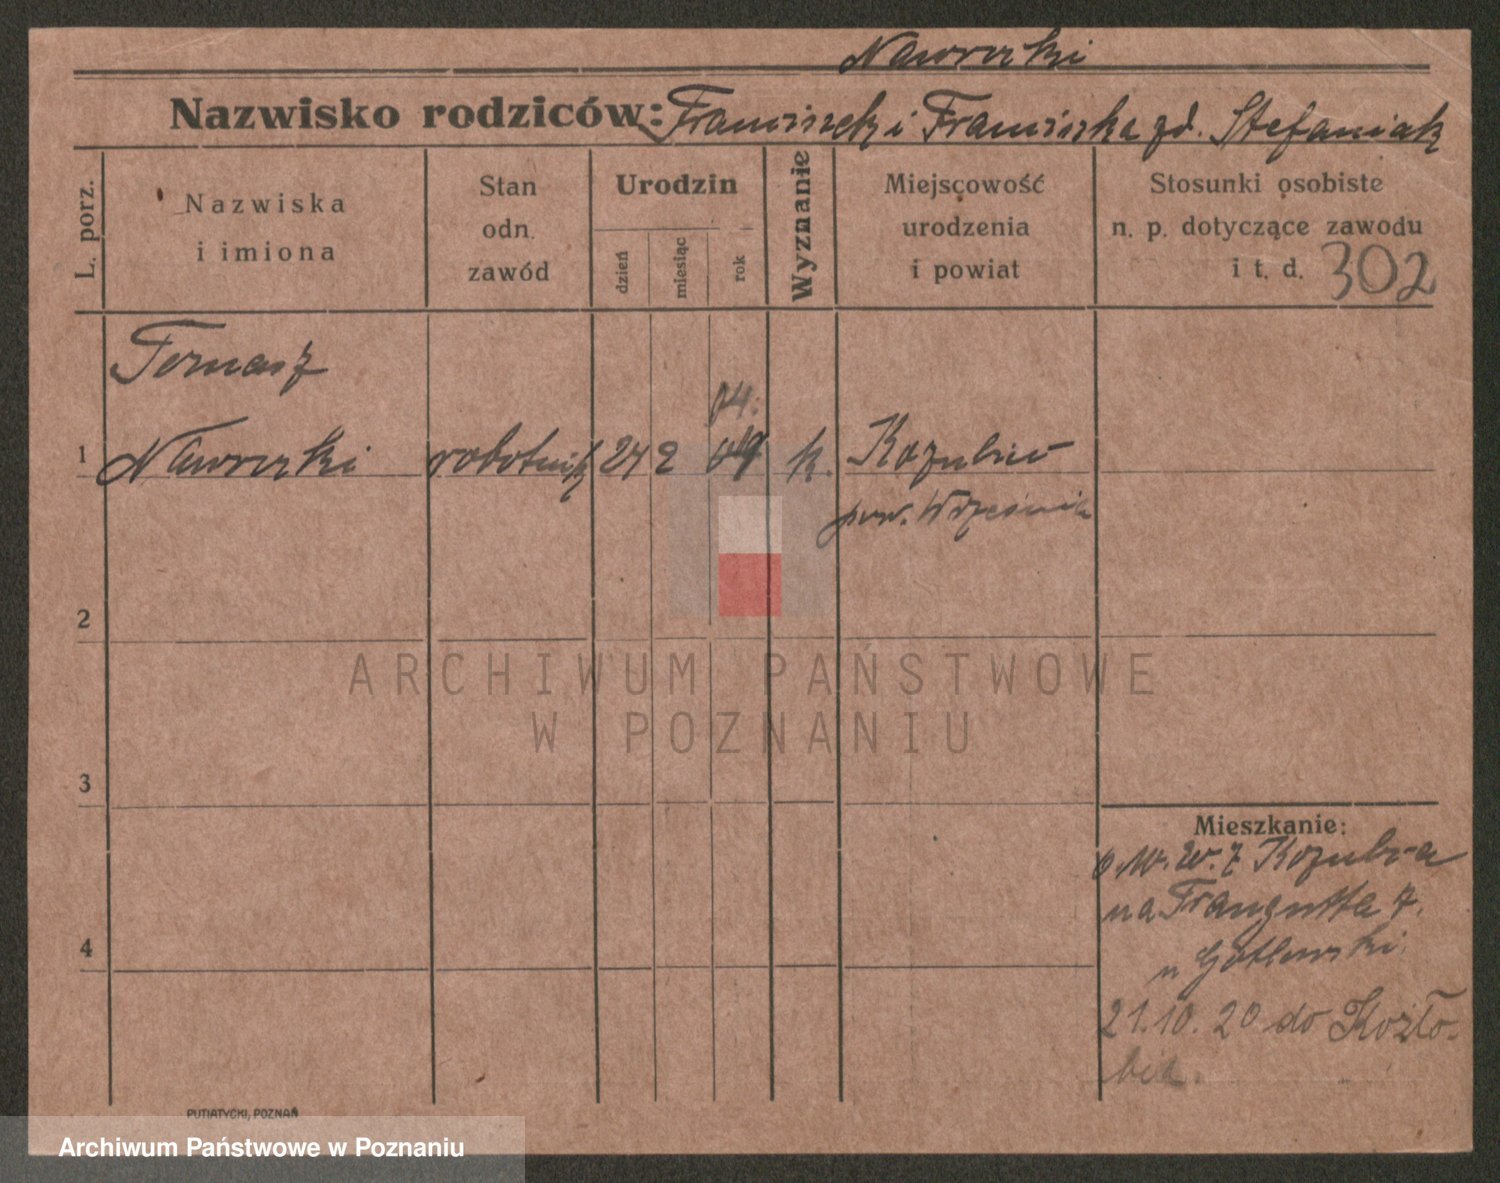 Nawrocki
Nazwisko rodziców: Franciszek i Franciszka zd. Stefaniak
L. porz.
Nazwiska
i imiona
Stan
odn.
zawód
Urodzin
dzień
miesiąc
rok
Wyznanie
Miejscowość
urodzenia
i powiat
Stosunki osobiste
n. p. dotyczące zawodu
i t. d. 302
Tomasz
04.
1 Nawrocki robotnik 24 2 k.
pow. Września
2
3
4
Mieszkanie:
na Traugutta 7.
21.10.20 do Kozło-
bia.
PUTIATYCKI, POZNAŃ
ARCHIWUM PAŃSTWOWE
W POZNANIU
Archiwum Państwowe w Poznaniu